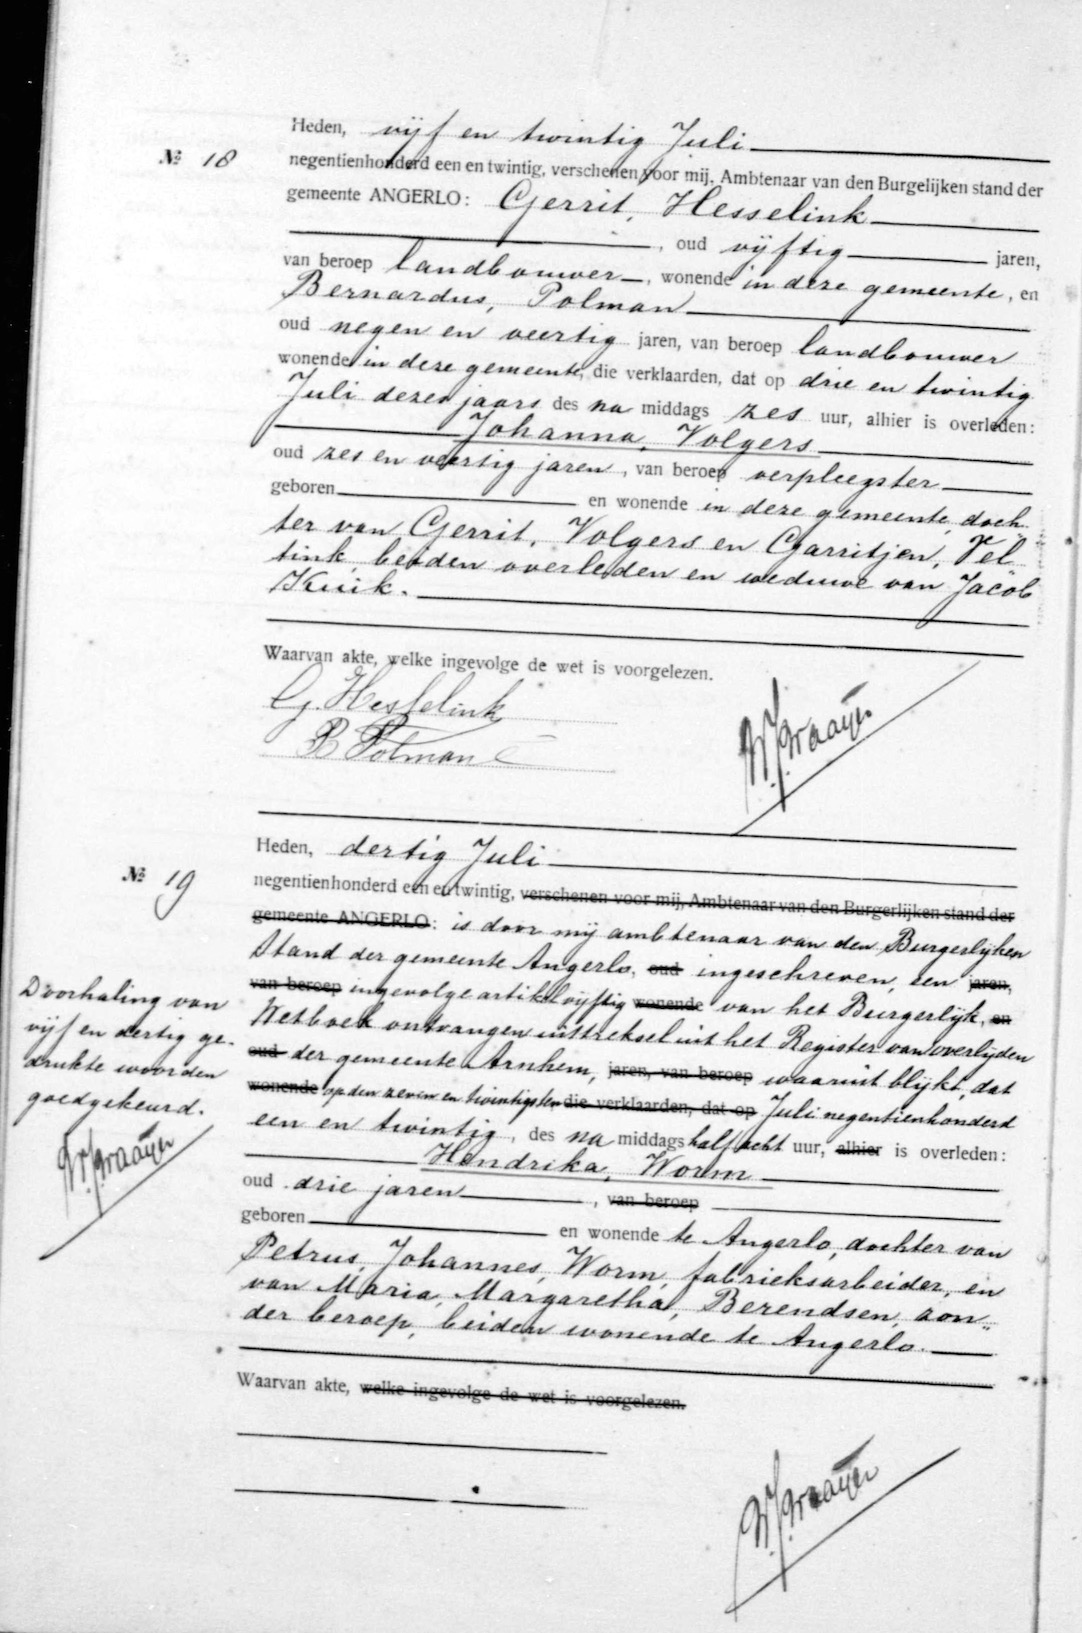 Heden, vijf en twintig Juli
№ 18
negentienhonderd een en twintig, verschenen voor mij, Ambtenaar van den Burgelijken stand der
gemeente ANGERLO: Gerrit, Hesselink
, oud vijftig jaren,
van beroep landbouwer, wonende in deze gemeente, en
Bernardus, Polman
oud negen en veertig jaren, van beroep landbouwer
wonende in deze gemeente, die verklaarden, dat op drie en twintig
Juli dezer jaars des na middags zes uur, alhier is overleden:
Johanna, Volgers
oud zes en veertig jaren, van beroep verpleegster
geboren en wonende in deze gemeente, doch
ter van Gerrit, Volgers en Garritjen, Vel
tink, beiden overleden en weduwe van Jacob
Kuik.
Waarvan akte, welke ingevolge de wet is voorgelezen.
G. Hesselink
B Polman
Heden, dertig Juli
№ 19
negentienhonderd een en twintig, verschenen voor mij, Ambtenaar van den Burgerlijken stand der
gemeente ANGERLO: is door mij ambtenaar van den Burgerlijken
Stand der gemeente Angerlo, oud ingeschreven, een jaren,
van beroep ingevolge artikel vijftig wonende van het Burgerlijk, en
Wetboek ontvangen uittreksel uit het Register van overlijden
oud der gemeente Arnhem, jaren, van beroep waaruit blijkt, dat
wonende op den zeven en twintigsten die verklaarden, dat op Juli negentienhonderd
een en twintig, des na middags half acht uur, alhier is overleden:
Hendrika, Worm
oud drie jaren, van beroep
geboren en wonende te Angerlo, dochter van
Petrus, Johannes, Worm, fabrieksarbeider, en
van Maria, Margaretha, Berendsen, zon„
der beroep, beiden wonende te Angerlo.
Waarvan akte, welke ingevolge de wet is voorgelezen.
Doorhaling van
vijf en dertig ge-
drukte woorden
goedgekeurd.